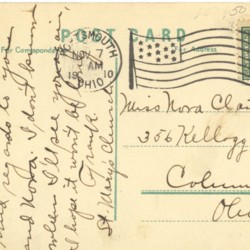 POST CARD
For Correspondence
Address
PORTSMOUTH
NOV
AM
1910
OHIO
Miss Nora Cla
356 Kellog
Colum
Ohio
Kind regards to you
and Nora. I don't know
when I'll see you
I hope it won't be
Frank
St. Mary's Church